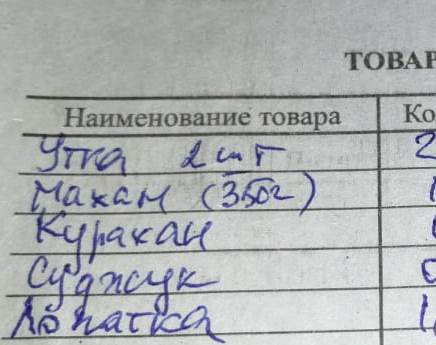 ТОВАР
Наименование товара Ко
Утка 2 шт 2
Махан (350г) 1
Курахан
Суджук
Лопатка 1,